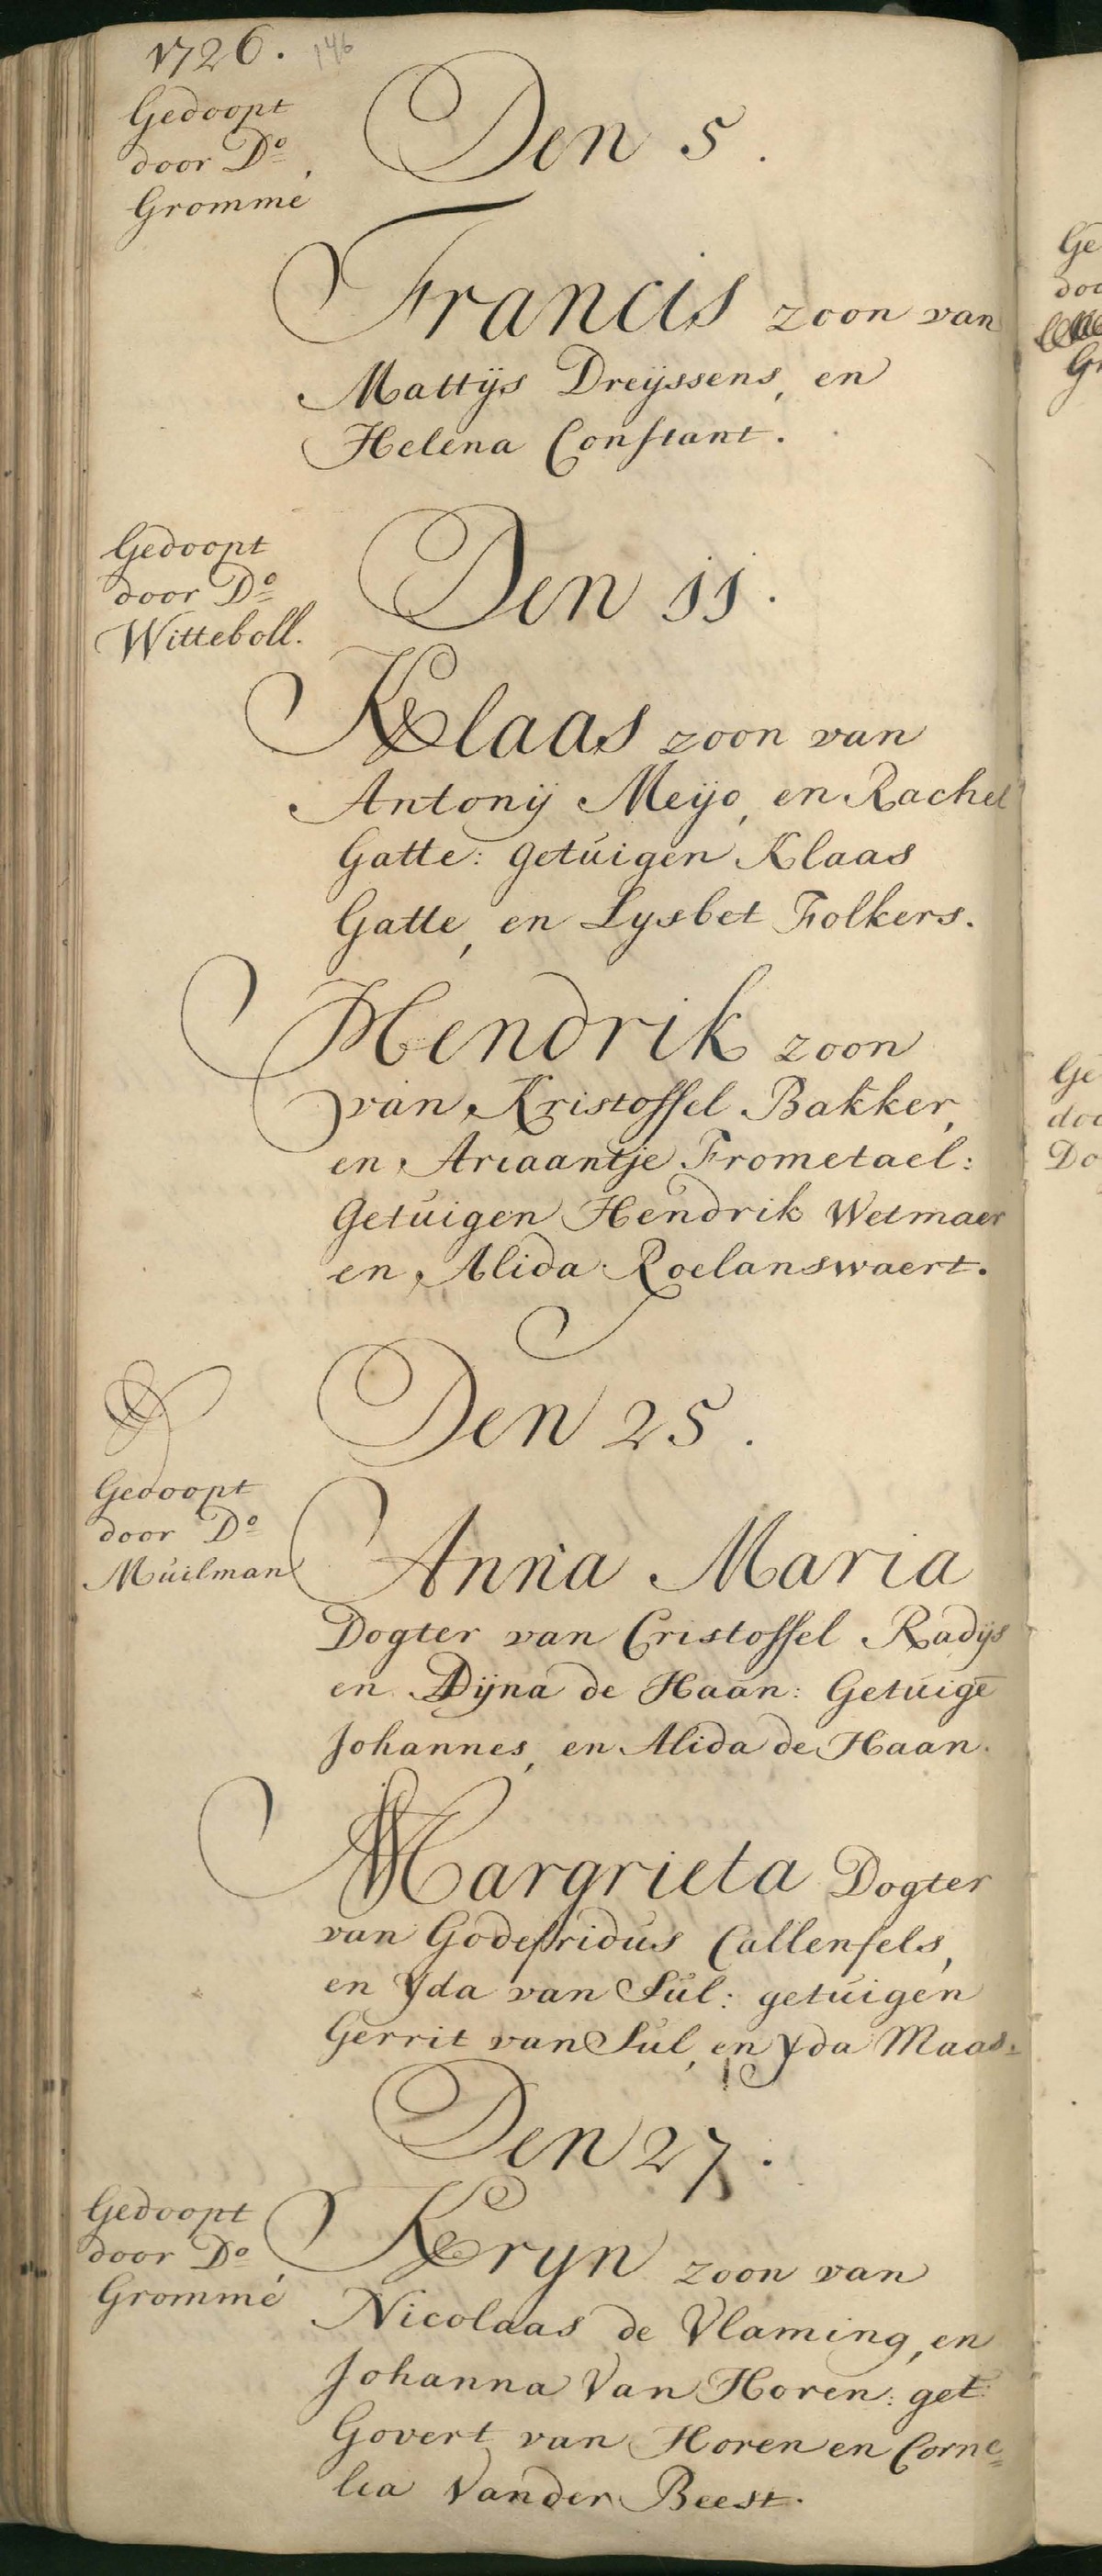 1726. 146
Gedoopt
door Do
Grommé
Den 5.
Francis zoon van
Mattÿs Dreÿssens, en
Helena Constant.
Gedoopt
door Do
Witteboll.
Den 11.
Klaas zoon van
Antonÿ Meÿo, en Rachel
Gatte: getuigen Klaas
Gatte, en Lysbet Folkers.
Hendrik zoon
van Kristoffel Bakker,
en Ariaantje Frometael:
Getuigen Hendrik Wetmaer
en Alida Roelanswaert.
Den 25.
Gedoopt
door Do
Muilman
Anna Maria
Dogter van Cristoffel Radÿs
en Dÿna de Haan: Getuigē
Johannes, en Alida de Haan.
Margrieta Dogter
van Godefridus Callenfels,
en Yda van Sul: getuigen
Gerrit van Sul, en Yda Maas.
Den 27.
Gedoopt
door Do
Grommé
Kryn zoon van
Nicolaas de Vlaming, en
Johanna Van Horen: get:
Govert van Horen en Corne=
lia Vander Beest.
Ge
doo
Gr
Ge
doo
Do